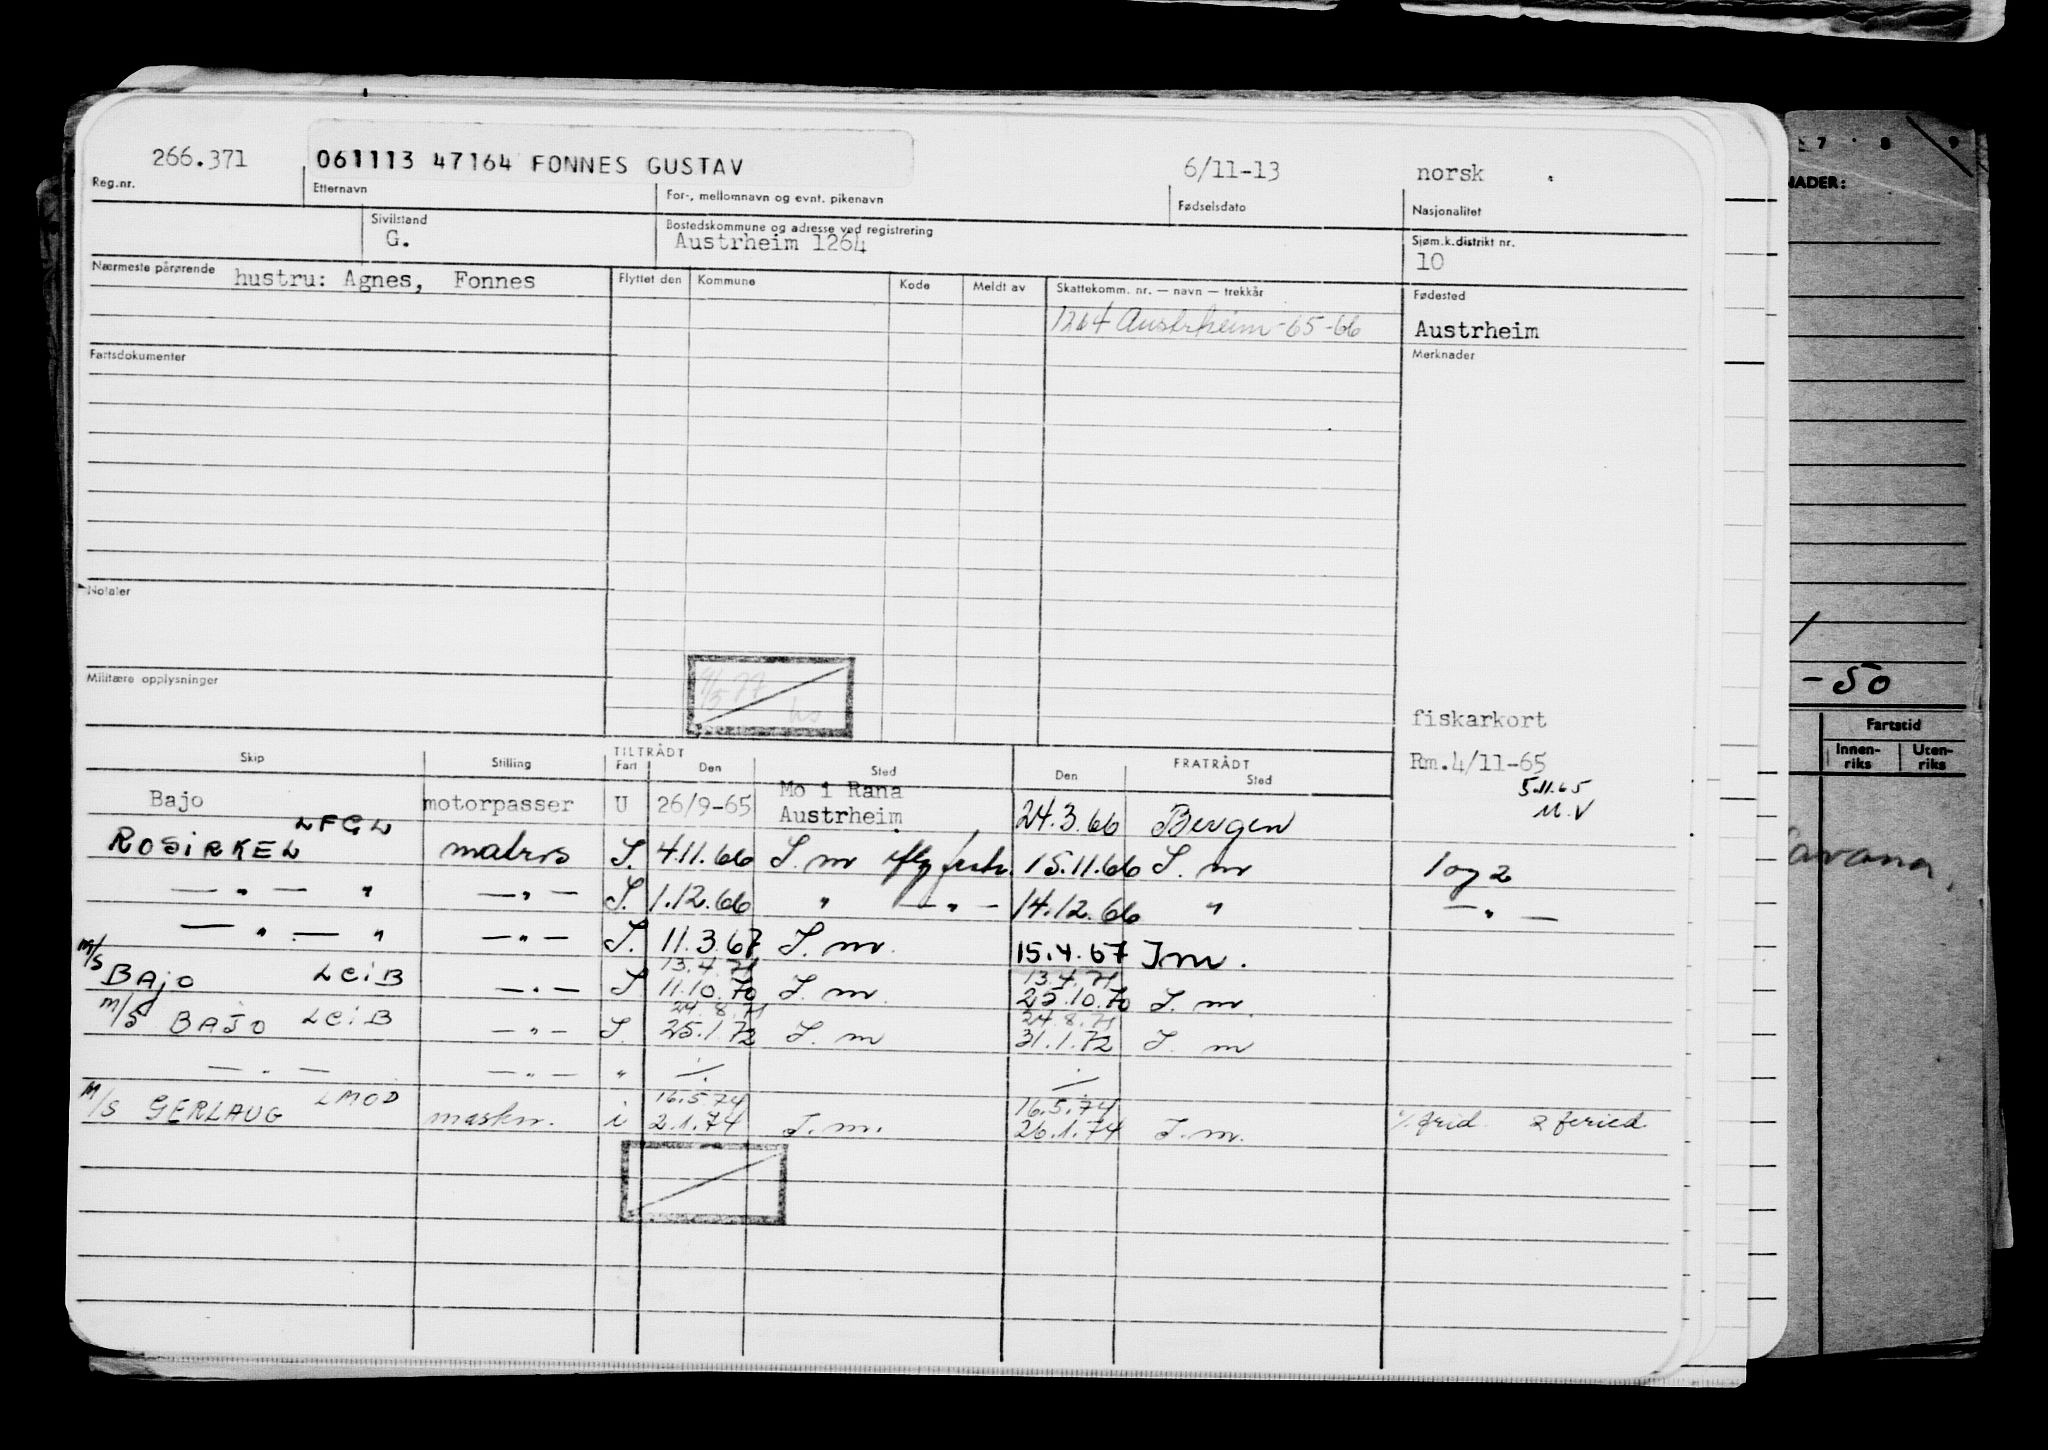 266.371 061113 47164 FONNES GUSTAV 6/11-13 norsk
Reg.nr. Etternavn For-, mellomnavn og evnt. pikenavn Fødselsdato Nasjonalitet
Sivilstand Bostedskommune og adresse ved registrering Sjøm.k.distrikt nr.
G. Austrheim 1264 10
Nærmeste pårørende hustru: Agnes, Fonnes Flyttet den Kommune Kode Meldt av Skattekomm. nr. — navn — trekkår Fødested
1264 Austrheim -65-66 Austrheim
Fartsdokumenter Merknader
Notater
Militære opplysninger
fiskarkort
Skip Stilling TILTRÅDT FRATRÅDT Rm.4/11-65
Fart Den Sted Den Sted
5.11.65
M.V
Bajo motorpasser U 26/9-65 Mo i Rana
Austrheim 24.3.66 Bergen
LFGW
ROSIRKEL matros S. 4.11.66 S. m 15.11.66 S. m 1 og 2
— " — " — " — S. 1.12.66 " — " — 14.12.66 " — " —
— " — " — " — S. 11.3.67 S. m. 15.4.67 S m.
13.4.71 13.4.71
M/S BAJO LCIB — " — S 11.10.70 S. m. 25.10.70 S. m.
24.8.71 24.8.71
M/S BAJO LCIB — " — S. 25.1.72 S. m 31.1.72 S. m
— " — — " — "
16.5.74 16.5.74
M/S GERLAUG LMOD maskn. i 2.1.74 S. m. 26.1.74 S. m.
NADER:
7 8 9
-50
Fartstid
Innen-
riks
Uten-
riks